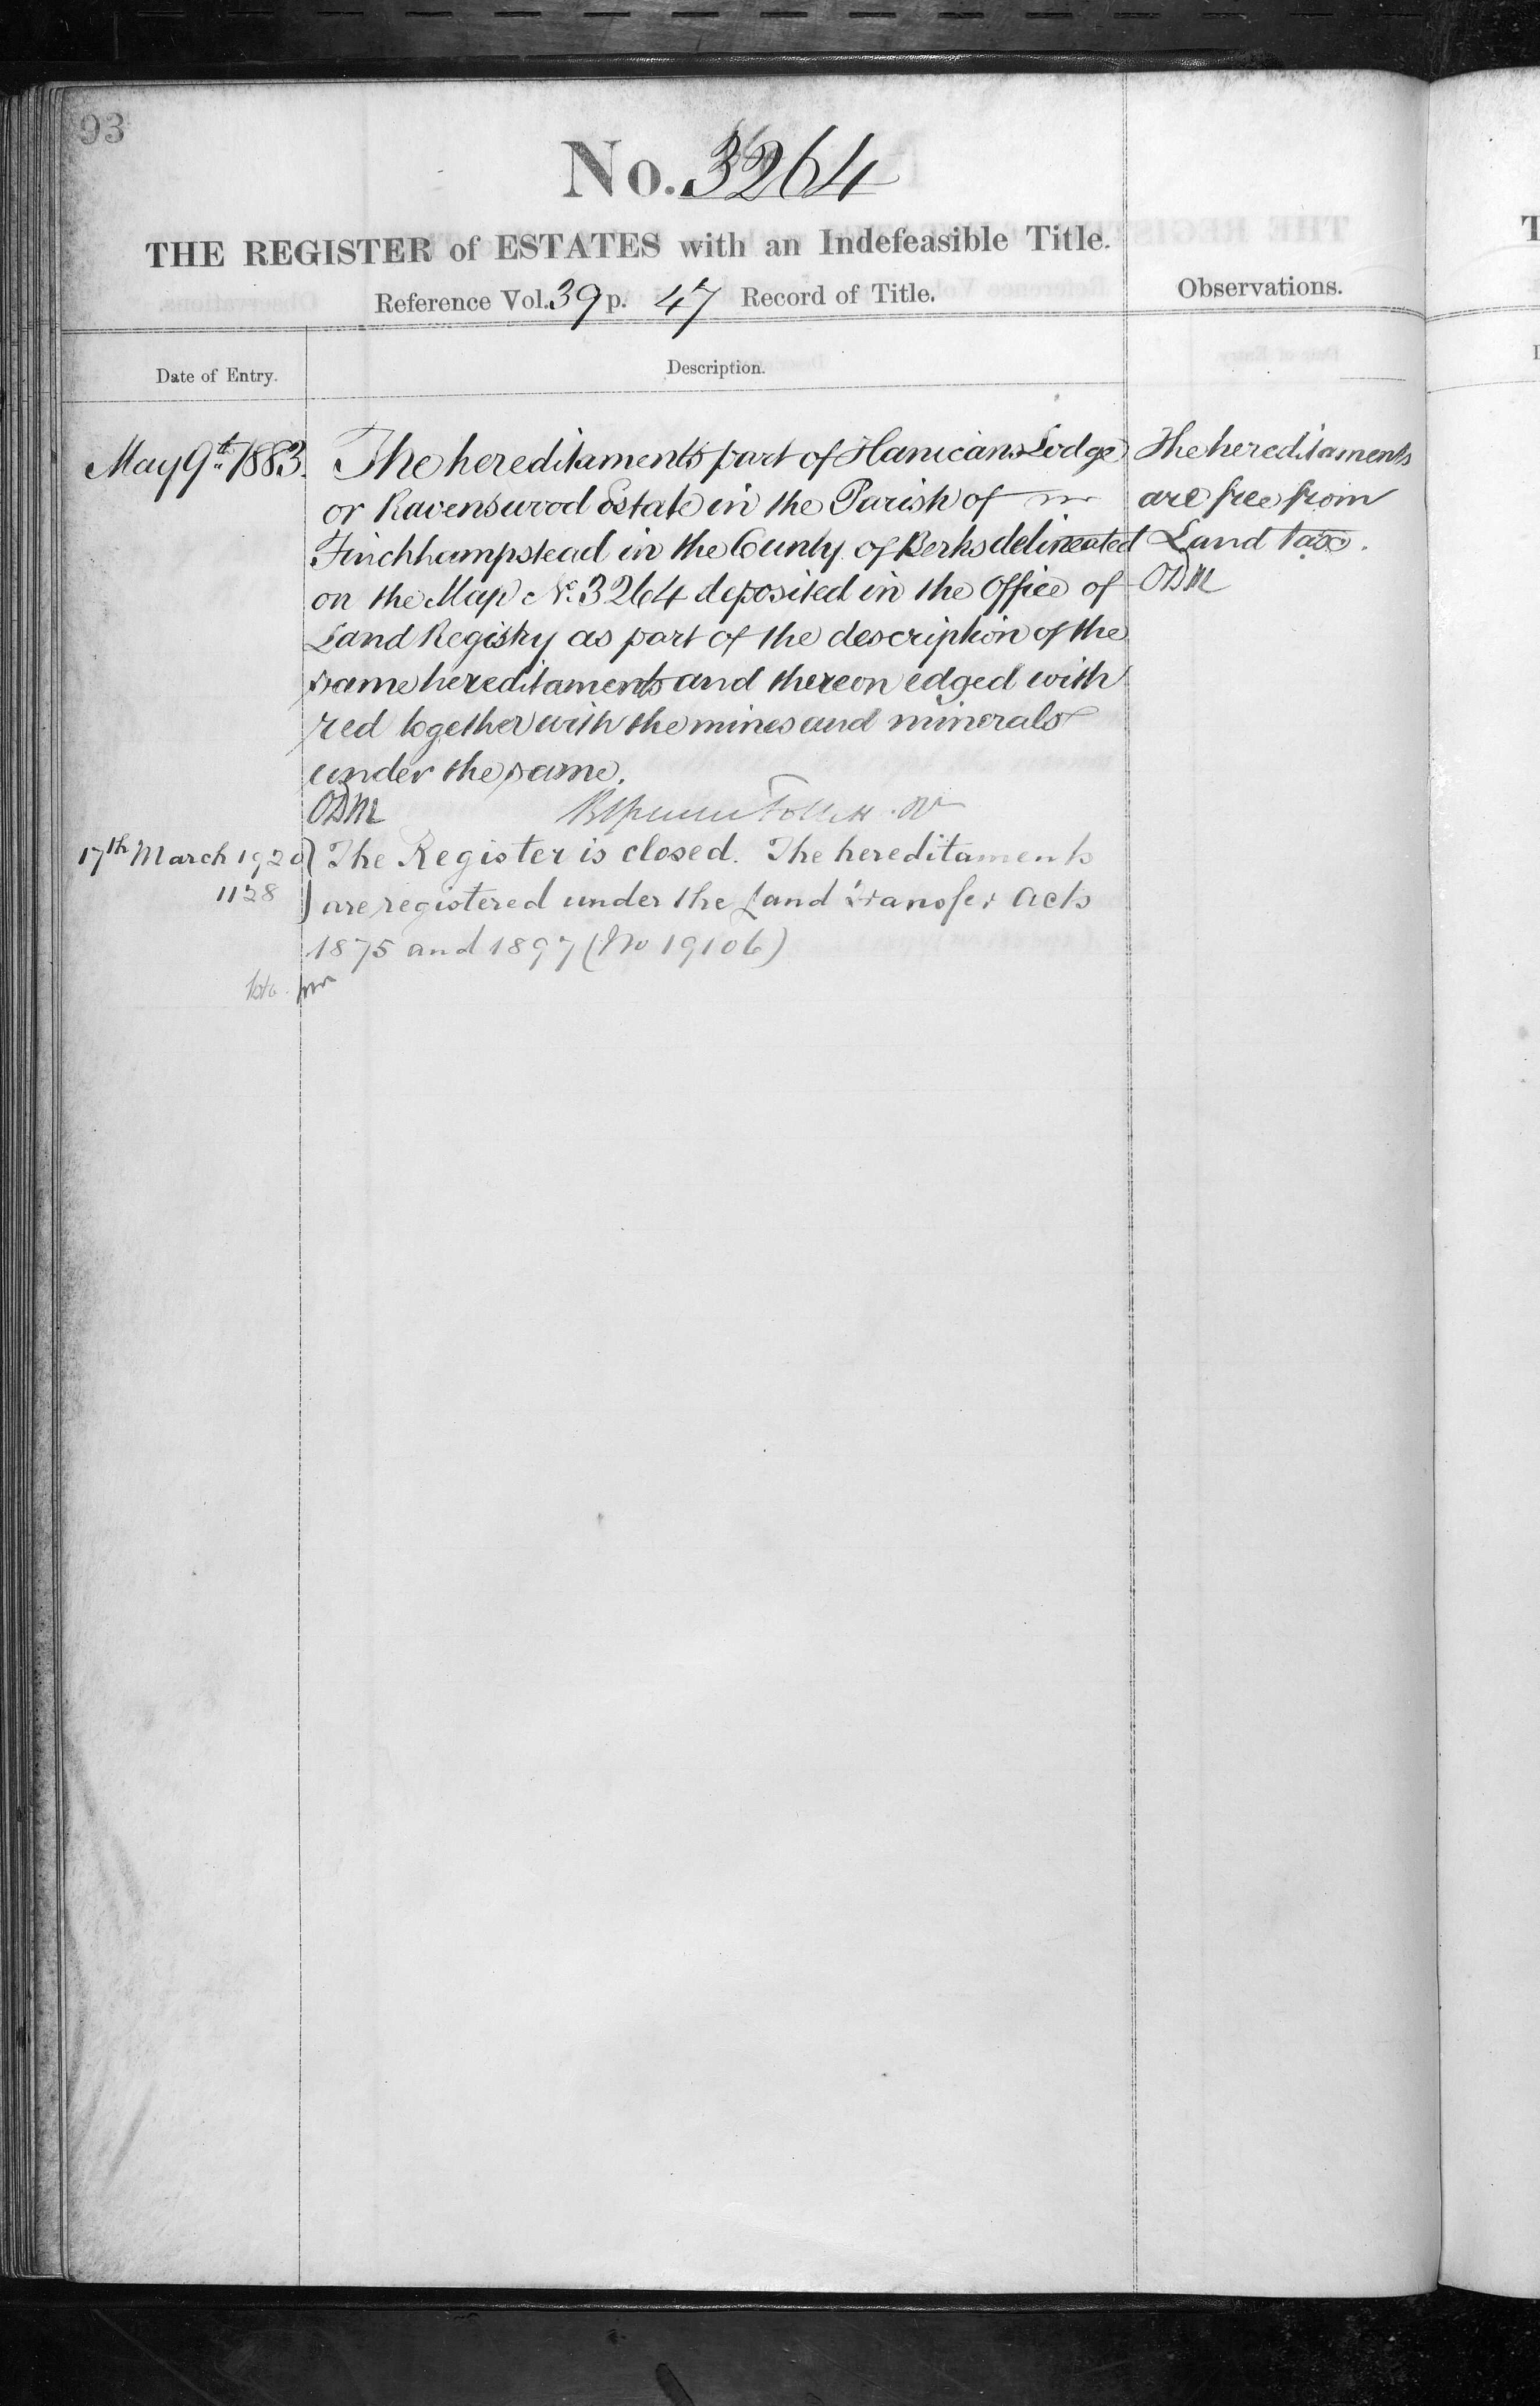 93
No. 3264
THE REGISTER of ESTATES with an Indefeasible Title.
Reference Vol. 39 p. 47 Record of Title.
Observations.
Date of Entry.
Description.
May 9th 1883.
The hereditaments part of Hanicans Lodge
or Ravenswood Estate in the Parish of
Finchhampstead in the County of Berks delineated
on the Map No. 3264 deposited in the Office of
Land Registry as part of the description of the
same hereditaments and thereon edged with
red together with the mines and minerals
under the same.
ODM
The hereditaments
are free from
Land tax.
ODM
17th March 1920
1128
The Register is closed. The hereditaments
are registered under the Land Transfer Acts
1875 and 1897 (No 19106)